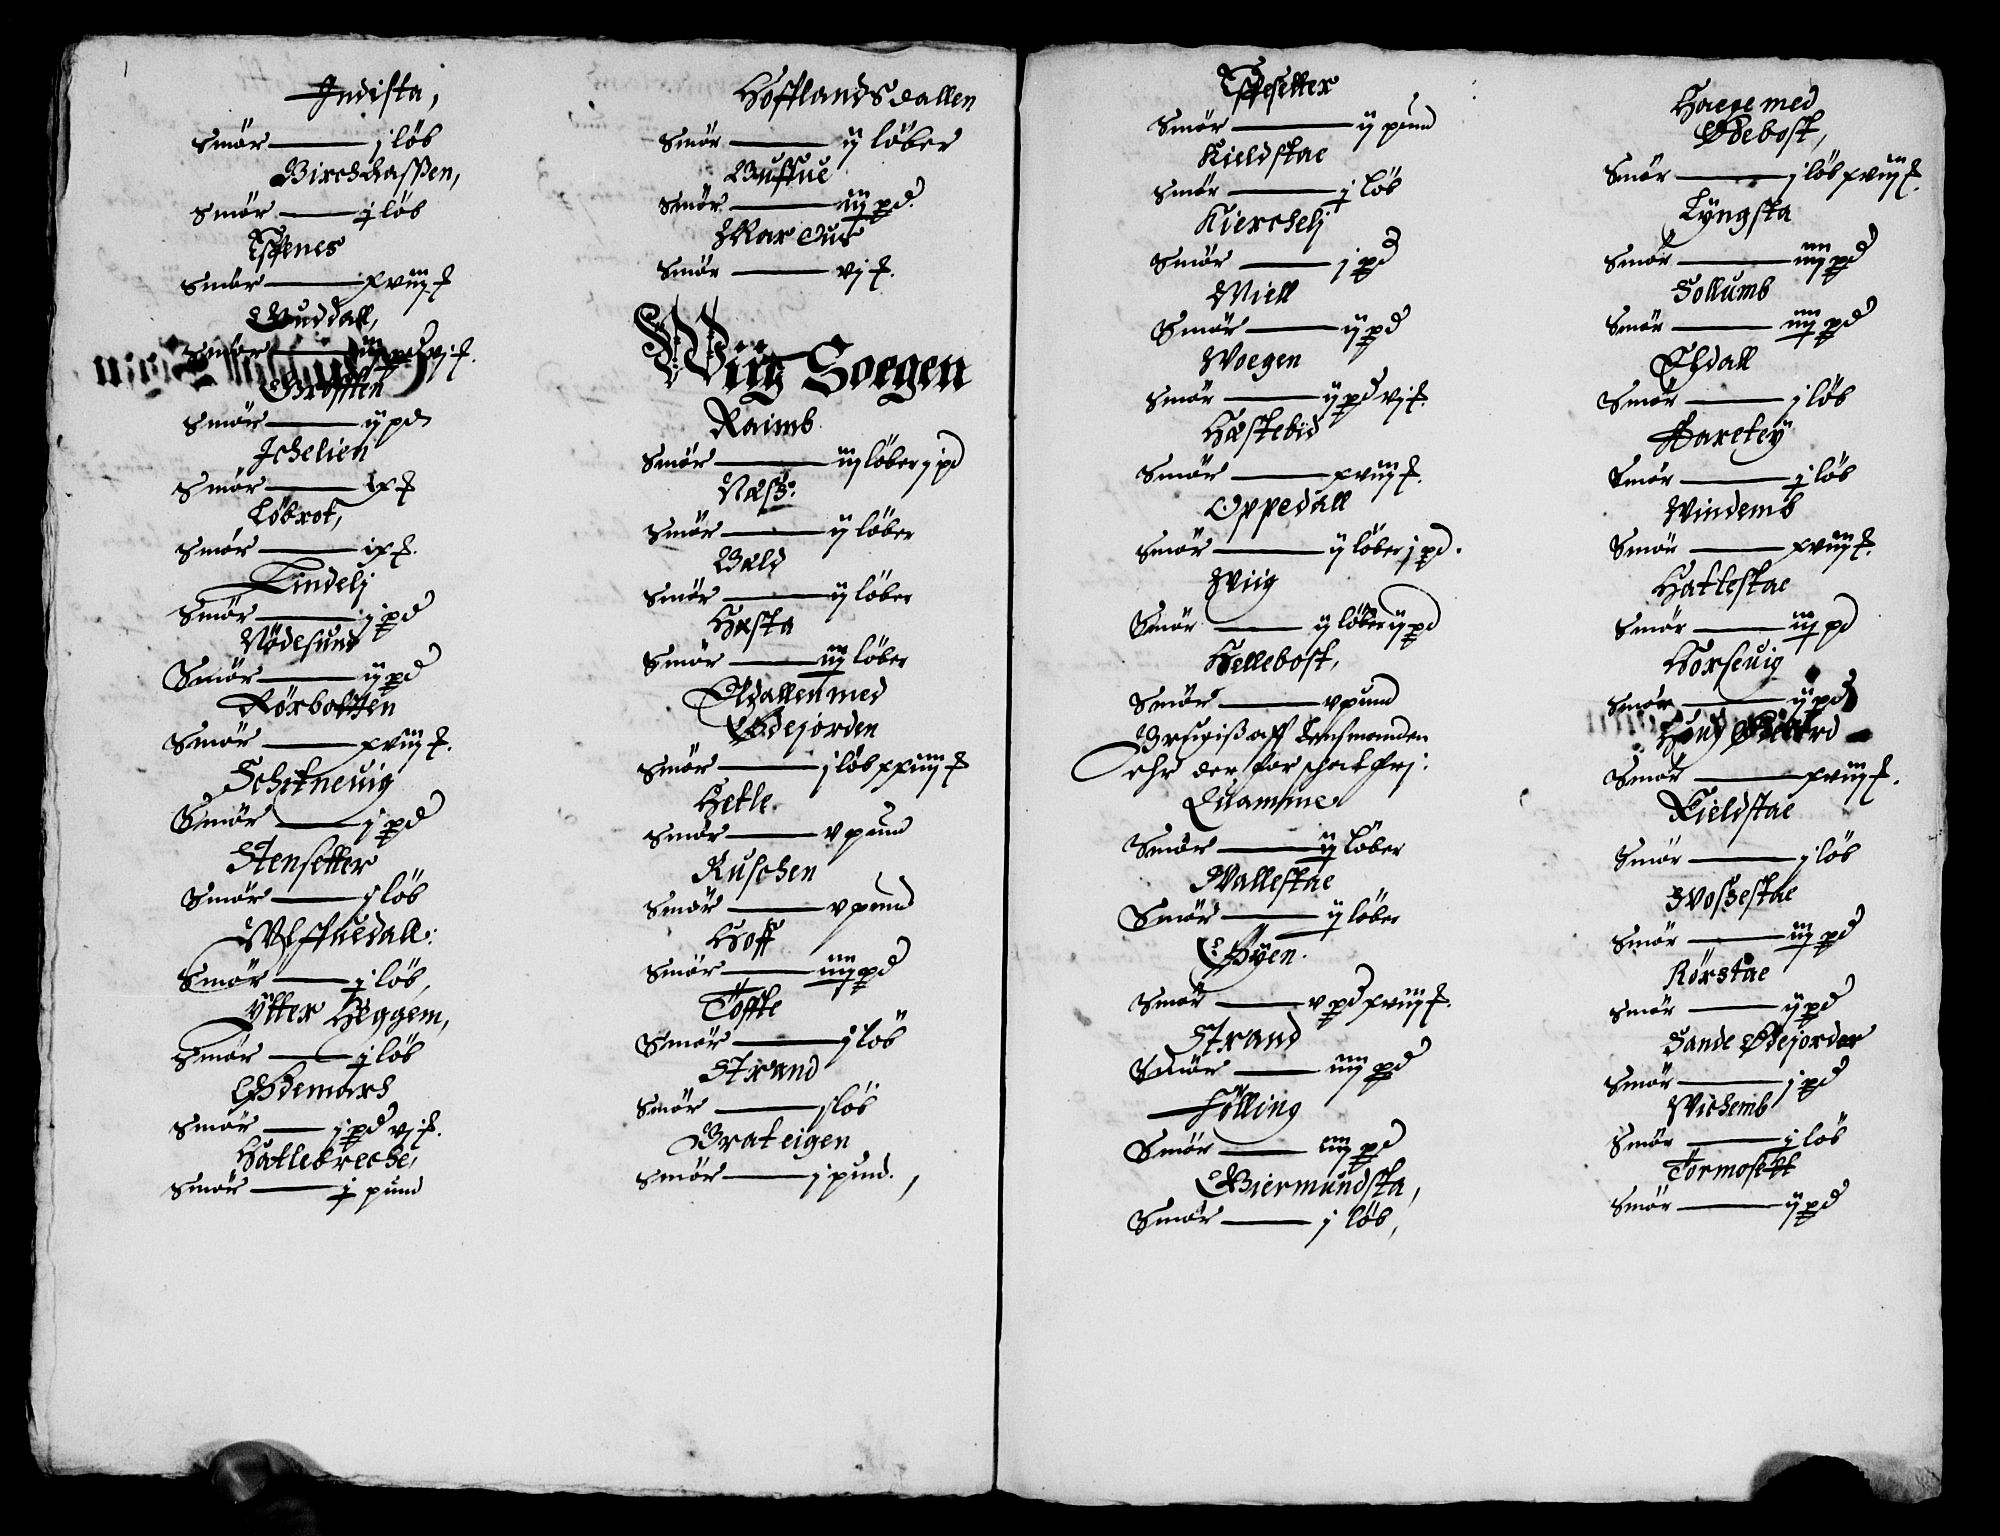 Indista,
Smör — j löb
Birchhaffen,
Smör — j löb
Espenes
Smör — xviij ⌠
Guddall,
Smör — iij pd vj ⌠.
Grofften
Smör — ij pd
Ichelien
Smör — ix ⌠
Löbrot,
Smör — ix ⌠.
Lindelj
Smör — j pd
Nödesund
Smör — ij pd
Rörbotten
Smör — xviij ⌠.
Schifneuig
Smör — j pd
Stensetter
Smör — j löb
Wlffuedall:
Smör — j löb,
Ytter Heggem,
Smör — j löb
Ødemarch
Smör — j pd vj ⌠.
Hatlebreche,
Smör — j pund
Hofflandsdallen
Smör — ij löber
Buffue
Smör — iij pd.
Smör — vj ⌠.
Wiig Soegen
Raimb
Smör — iij löber j pd
Næss:
Smör — ij löber
Bæld
Smör — ij löber
Hæsta
Smör — iij löber
Eldallen med
Ødejorden
Smör — j löb xxiiij ⌠
Hetle
Smör — v pund
Ruschen
Smör — v pund
Hoff
Smör — iiij pd
Toffte
Smör — j löb
Strand
Smör — j löb
Brateigen
Smör — j pund.,
Espesetter
Smör — ij pund
Kieldstae
Smör — j löb
Kierchelj
Smör — j pd
Miell
Smör — ij pd
Woegen
Smör — ij pd vj ⌠.
Hæstebid
Smör — xviij ⌠.
Oppedall
Smör — ij löber j pd.
Wiig
Smör — ij löber ij pd
Hellebost,
Smör — v pund
Brugiss aff Lensmanden
ehr der for schatfrj:
Quamme
Smör — ij löber
Wallestae
Smör — ij löber
Øyen.
Smör — v pd xviij ⌠.
Strand
Smör — iiij pd
Fölling
Smör — iiij pd
Giermundsta,
Smör — j löb,
Haege med
Ødebost,
Smör — j löb xviij ⌠.
Lyngsta
Smör — iiij pd
Sollumb
Smör — iiij pd
Eldall
Smör — j löb
Smör — j löb
Windemb
Smör — xviij ⌠.
Hatlestae
Smör — iij pd
Horseuig
Smör — ij pd
Smör — xviij ⌠.
Fieldstae
Smör — j löb
Wossestae
Smör — iij pd
Rörstae
Smör — ij pd
Sande Ødejorder
Smör — j pd
Wichemb
Smör — j löb
Tormosett
Smör — ij pd